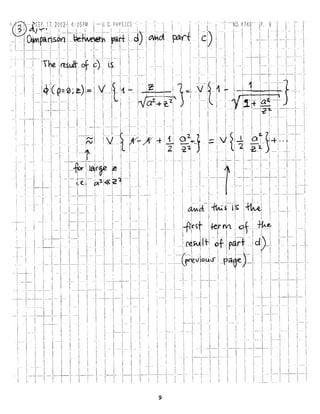 SEP. 17. 2002 4:05PM U C PHYSICS NO. 8763 P. 9
③ d)
Comparison between part d) and part c)
The result of c) is
ϕ(ρ=0; z) = V { 1 - z / √(a²+z²) } = V { 1 - 1 / √(1 + a²/z²) }
≈ V { 1 - 1 + 1/2 a²/z² - } = V { 1/2 a²/z² } + ...
for large z
i.e. a² << z²
and this is the
first term of the
result of part d)
(previous page)
9